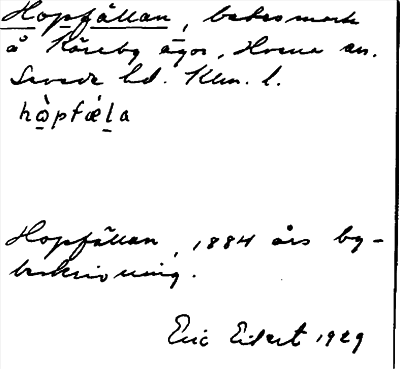 Hopfällan, betesmark
å Kåreby ägor, Hvena sn.
Sevede hd. Klm. l.
hòpfǽla
Hopfällan, 1884 års by-
beskrivning.
Eric Eilert 1929